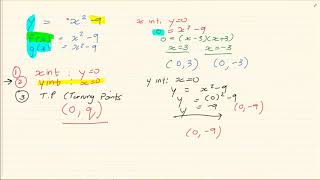 y = x² -9
f(x) = x² -9
g(x) = x² -9
① x int : y=0
② y int : x=0
③ T.P (Turning Points
(0, q)
x int : y=0
0 = x² -9
0 = (x-3)(x+3)
x=3 x=-3
(0,3) (0,-3)
y int : x=0
y = x² -9
y = (0)² -9
y = -9 (0,-9)
(0,-9)